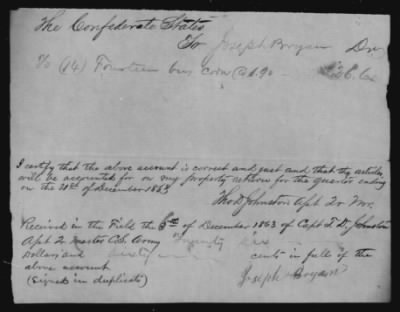 The Confederate States
To Joseph Bryan Dr
To (14) Fourteen bus corn @ 1.90
I certify that the above account is correct and just and that the articles
will be accounted for on my property return for the quarter ending
on the 31st of December 1863
Tho D Johnston Apt Qr Mr.
Received in the Field the 5th of December 1863 of Capt T. D. Johnston
Apt Q. Master C.S. Army Twenty Six
Dollars and cents in full of the
above account
(Signed in duplicate) Joseph Bryan